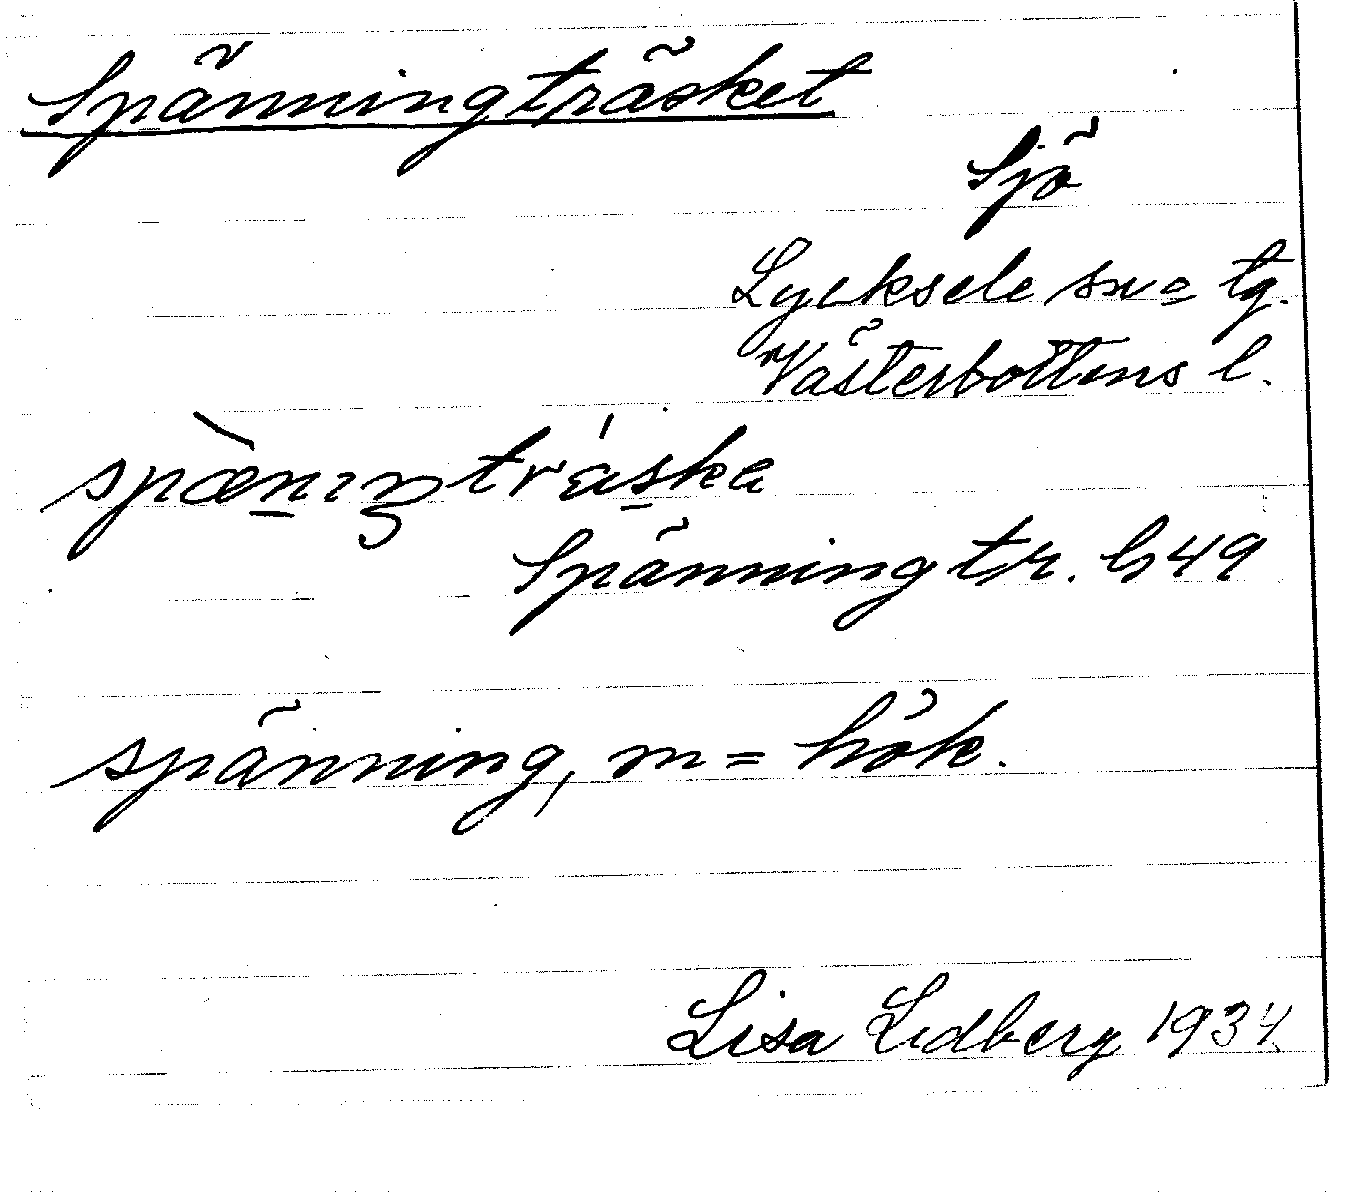 Spänningträsket
Sjö
Lycksele sn = tg.
Västerbottens l.
spæ̀nıŋtráska
Spänningtr. b 49
spänning, m = hök.
Lisa Lidberg 1934